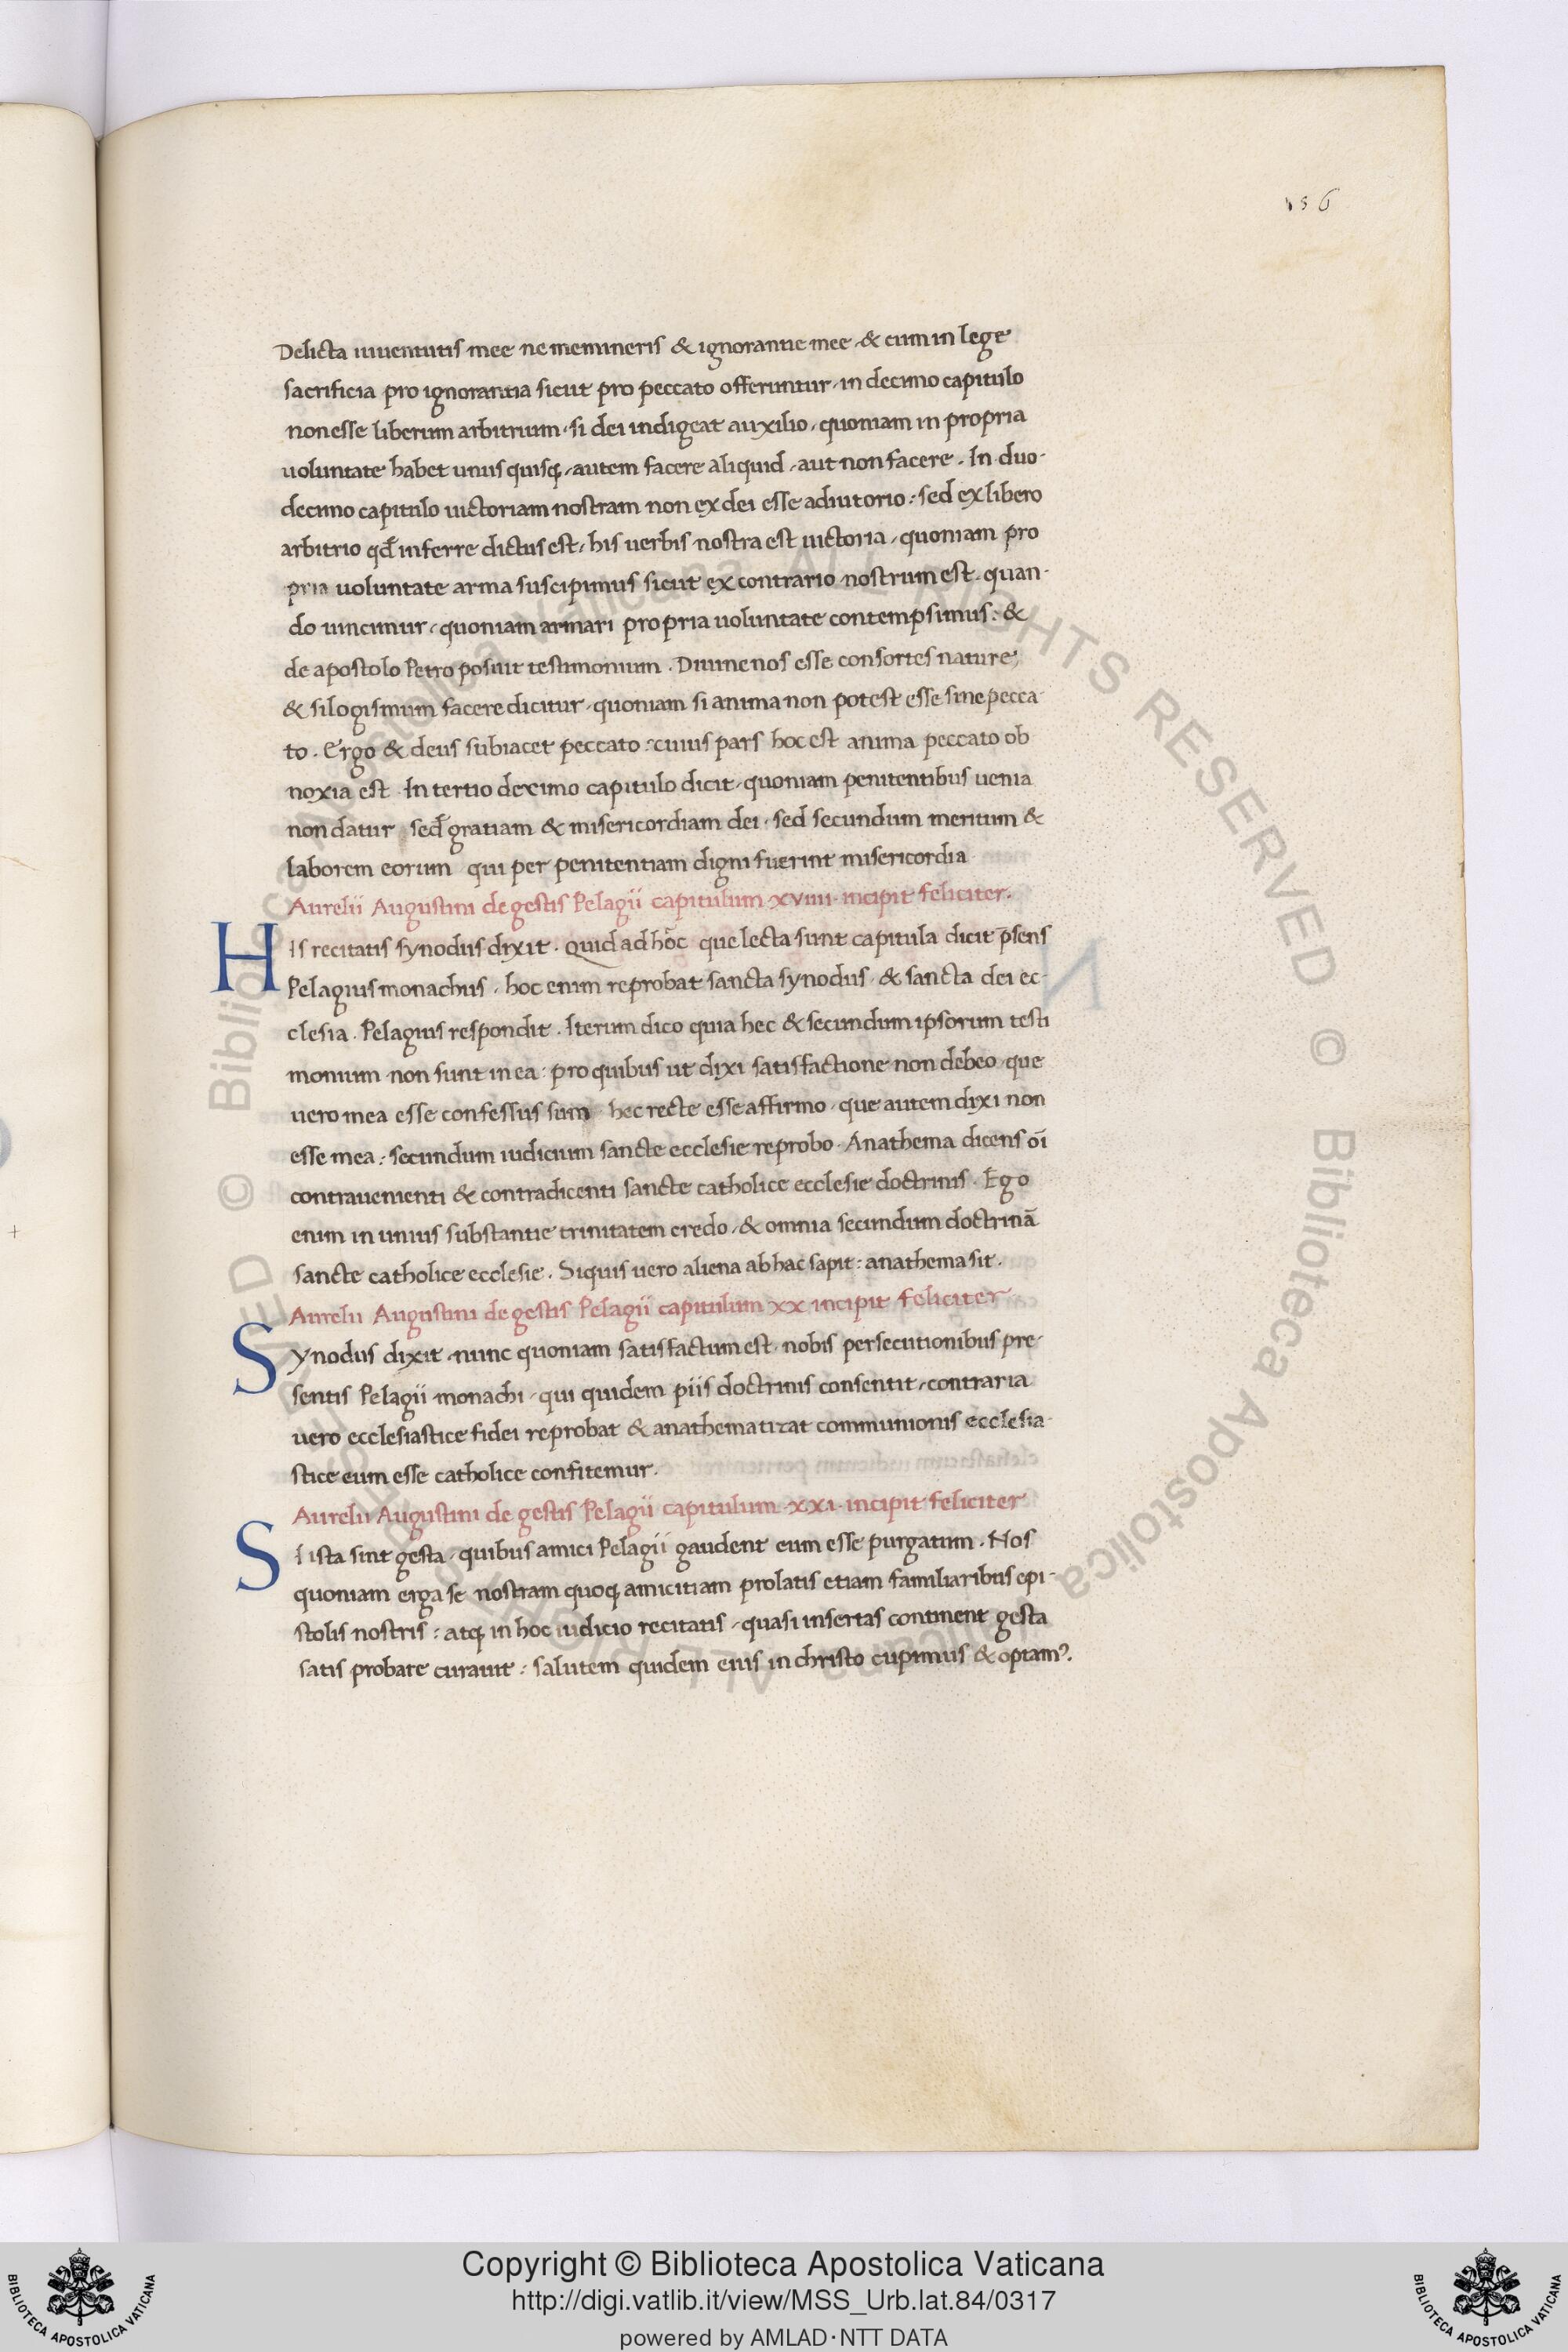 156
Delicta iuuentutis mee ne memineris & ignorantie mee & cum in lege
sacrificia pro ignorantia sicut pro peccato offeruntur. in decimo capitulo
non esse liberum arbitrium. si dei indigeat auxilio, quoniam in propria
uoluntate habet unus quisq; autem facere aliquid, aut non facere. In duo-
decimo capitulo uictoriam nostram non ex dei esse adiutorio: sed ex libero
arbitrio qđ inferre dictus est, his uerbis nostra est uictoria, quoniam pro
pria uoluntate arma suscipimus sicut ex contrario nostrum est. quan-
do uincimur, quoniam armari propria uoluntate contempsimus: &
de apostolo Petro posuit testimonium. Diuine nos esse consortes nature;
& silogismum facere dicitur, quoniam si anima non potest esse sine pecca-
to. Ergo & deus subiacet peccato: cuius pars hoc est anima peccato ob
noxia est. In tertio decimo capitulo dicit, quoniam penitentibus uenia
non datur sed gratiam & misericordiam dei. sed secundum meritum &
laborem eorum qui per penitentiam digni fuerint misericordia
Aurelii Augustini de gestis Pelagii capitulum xviiii. incipit feliciter.
HIs recitatis synodus dixit. Quid ad hoc que lecta sunt capitula dicit p̄sens
Pelagius monachus. hoc enim reprobat sancta synodus. & sancta dei ec-
clesia. Pelagius respondit. Iterum dico quia hec & secundum ipsorum testi
monium non sunt mea: pro quibus ut dixi satisfactione non debeo. que
uero mea esse confessus sum hec recte esse affirmo. que autem dixi non
esse mea: secundum iudicium sancte ecclesie reprobo. Anathema dicens oī
contrauenienti & contradicenti sancte catholice ecclesie doctrinis. Ego
enim in unius substantie trinitatem credo, & omnia secundum doctrinā
sancte catholice ecclesie. Siquis uero aliena ab hac sapit: anathema sit.
Aurelii Augustini de gestis Pelagii capitulum xx incipit feliciter
Synodus dixit. nunc quoniam satisfactum est. nobis persecutionibus pre-
sentis Pelagii monachi, qui quidem piis doctrinis consentit, contraria
uero ecclesiastice fidei reprobat & anathematizat communionis ecclesia-
stice eum esse catholice confitemur.
Aurelii Augustini de gestis Pelagii capitulum .xxi. incipit feliciter
SI ista sint gesta, quibus amici Pelagii gaudent eum esse purgatum. Nos
quoniam erga se nostram quoq; amicitiam prolatis etiam familiaribus epi-
stolis nostris: atq; in hoc iudicio recitatis, quasi insertas continent gesta
satis probare curauit: salutem quidem eius in christo cupimus & optam².
© Biblioteca Apostolica Vaticana ALL RIGHTS RESERVED © Biblioteca Apostolica Vaticana ALL RIGHTS RESERVED
BIBLIOTECA APOSTOLICA VATICANA
Copyright © Biblioteca Apostolica Vaticana
http://digi.vatlib.it/view/MSS_Urb.lat.84/0317
powered by AMLAD·NTT DATA
BIBLIOTECA APOSTOLICA VATICANA